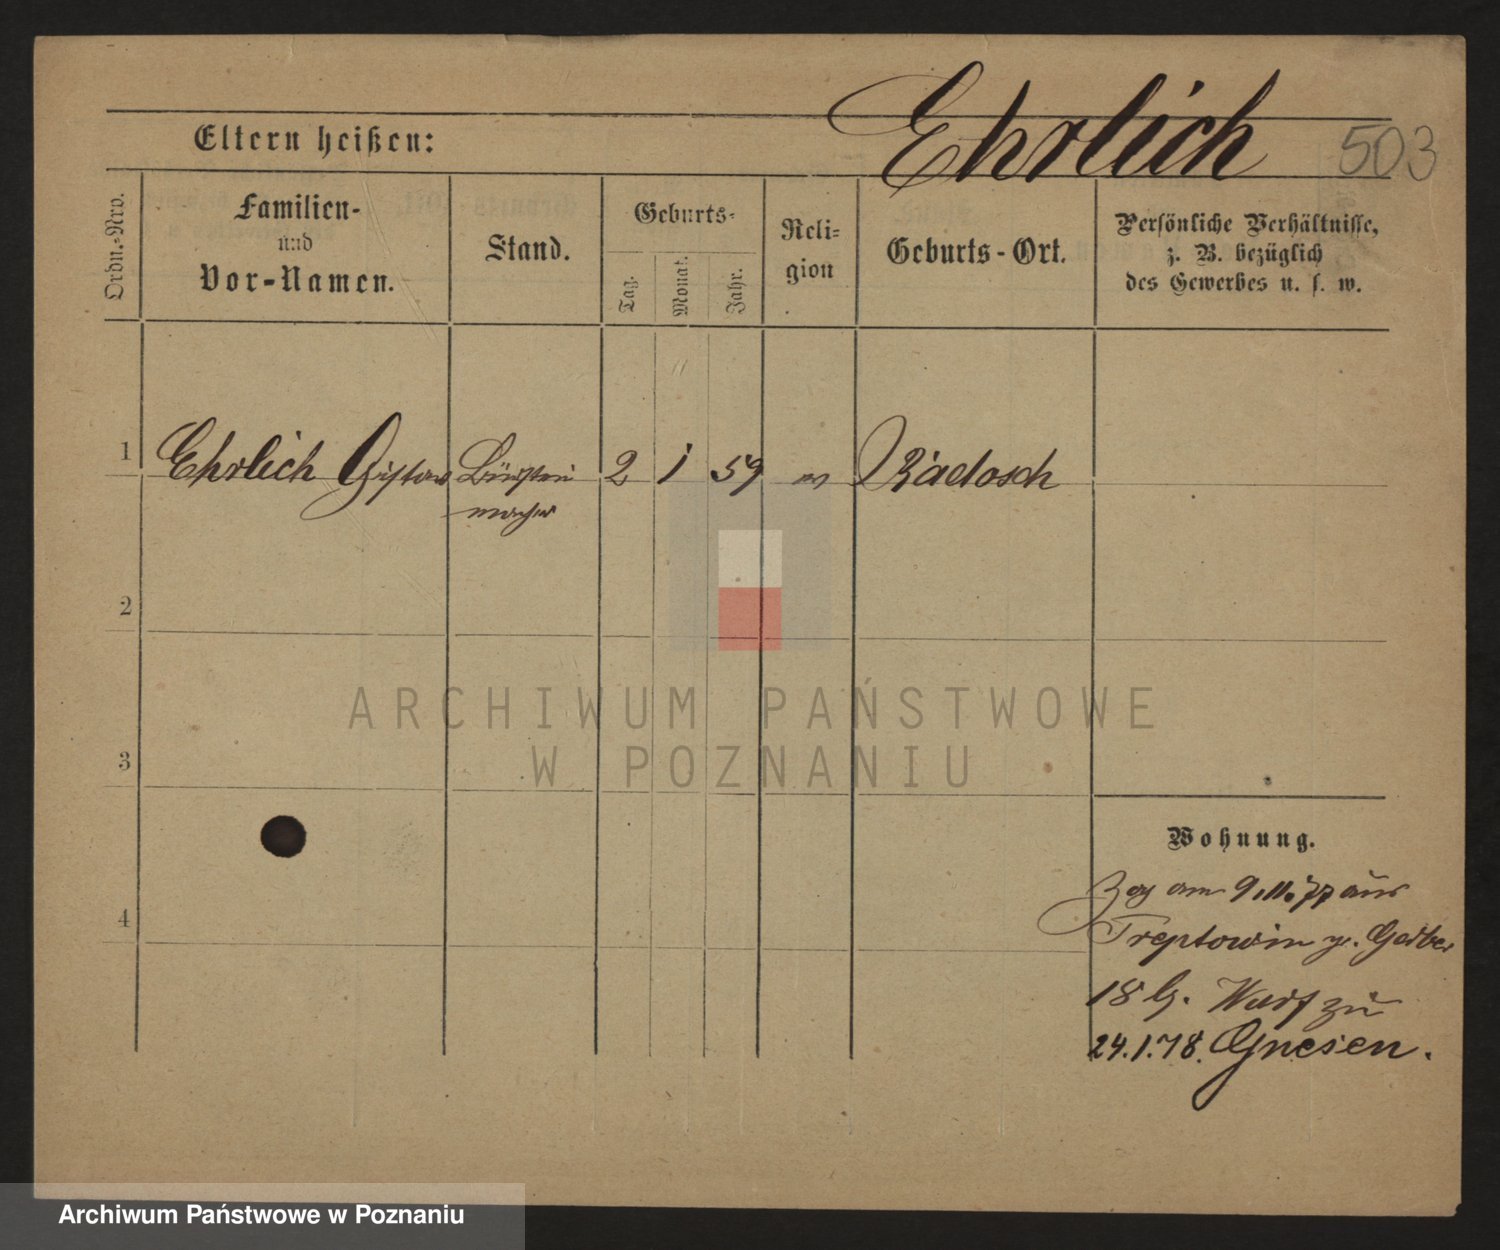 Ehrlich 503
Eltern heißen:
Ordn.-Nro.
Familien-
und
Vor-Namen.
Stand.
Geburts-
Tag.
Monat.
Jahr.
Reli-
gion
Geburts-Ort.
Persönliche Verhältnisse,
z. B. bezüglich
des Gewerbes u. s. w.
1 Ehrlich Gustav Bürsten 2 1 59 Radosch
macher
2
3
4
ARCHIWUM PAŃSTWOWE
W POZNANIU
Wohnung.
Zog am 9.11.77 aus
Treptow in gr. Gerber
18 b.
24.1.78. Gnesen.
Archiwum Państwowe w Poznaniu